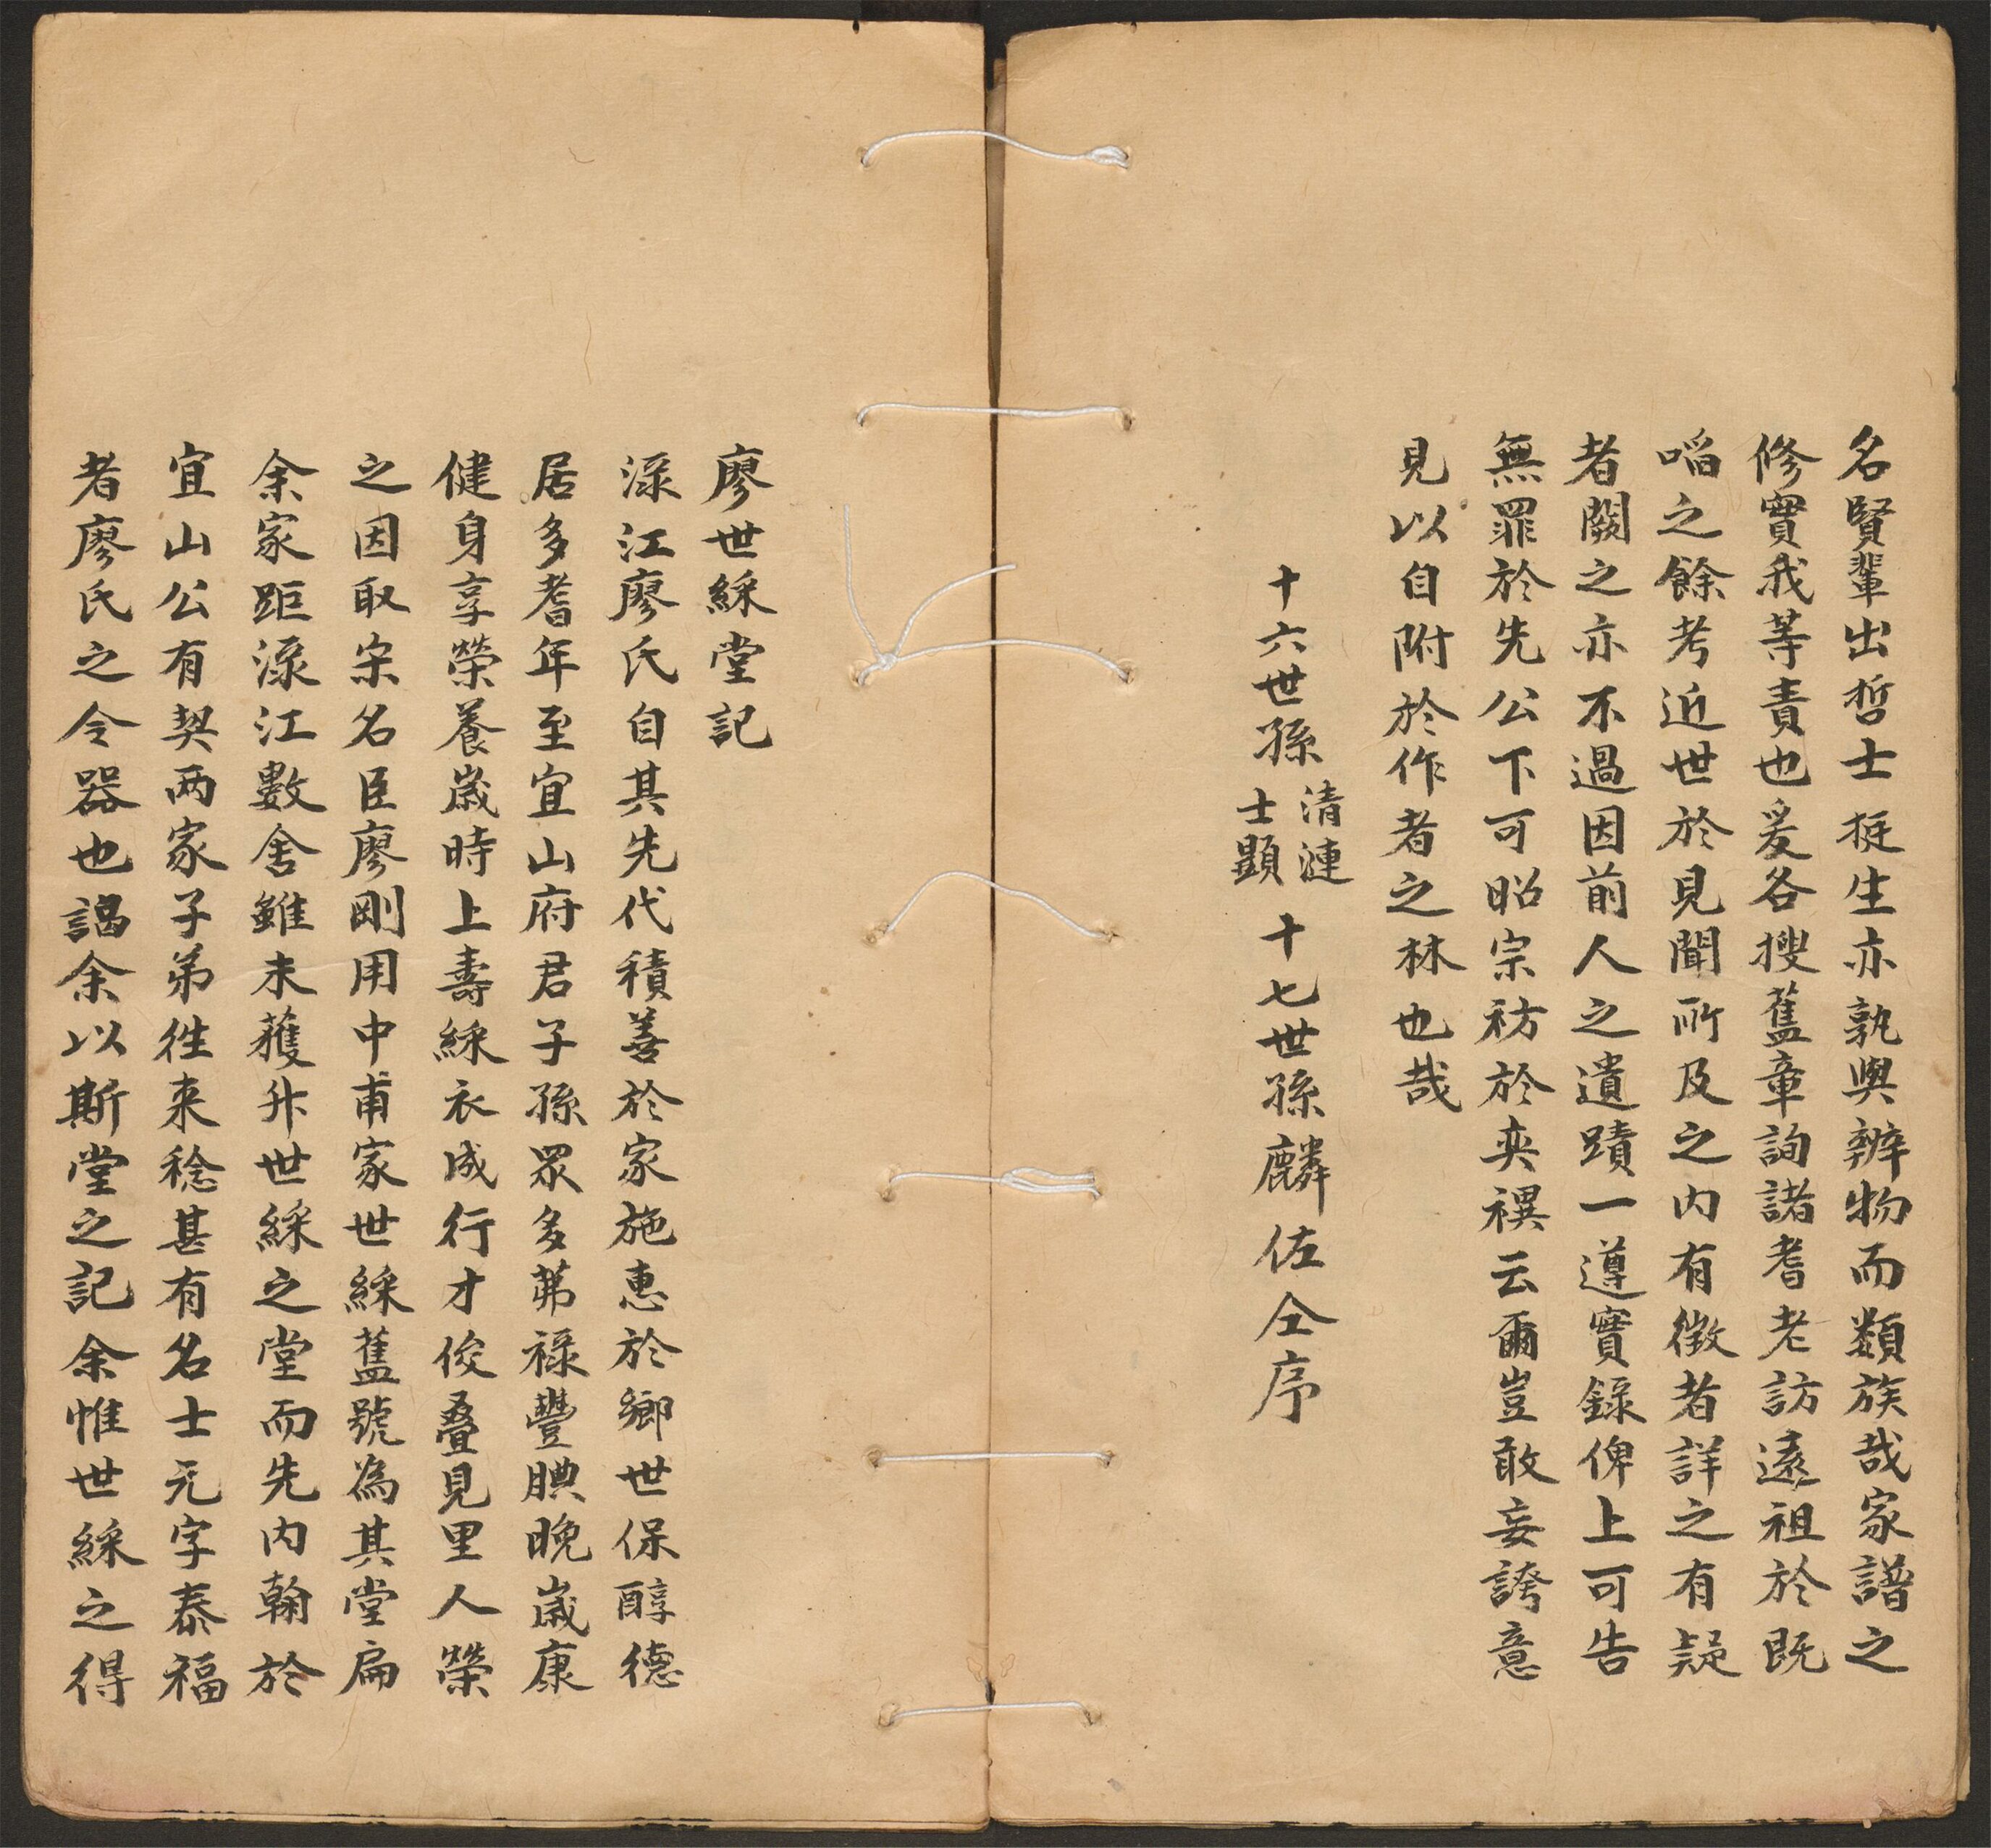 名賢輩出哲士挺生亦孰與辨物而類族哉家譜之
修實我等責也爰各搜舊章詢諸耆老訪遠祖於既
㗖之餘考近世於見聞所及之內有徵者詳之有疑
者闕之亦不過因前人之遺蹟一遵實錄俾上可告
無罪於先公下可昭宗祊於奕禩云爾豈敢妄誇意
見以自附於作者之林也哉
十六世孫 清漣 士顯 十七世孫麟佐仝序
廖世綵堂記
渌江廖氏自其先代積善於家施惠於鄉世保醇德
居多耆年至宜山府君子孫眾多茀祿豐腆晚歲康
健身享榮養歲時上壽綵衣成行才俊叠見里人榮
之因取宋名臣廖剛用中甫家世綵舊號為其堂扁
余家距渌江數舍雖未獲升世綵之堂而先內翰於
宜山公有契两家子弟徃来稔甚有名士元字泰福
者廖氏之令器也謁余以斯堂之記余惟世綵之得